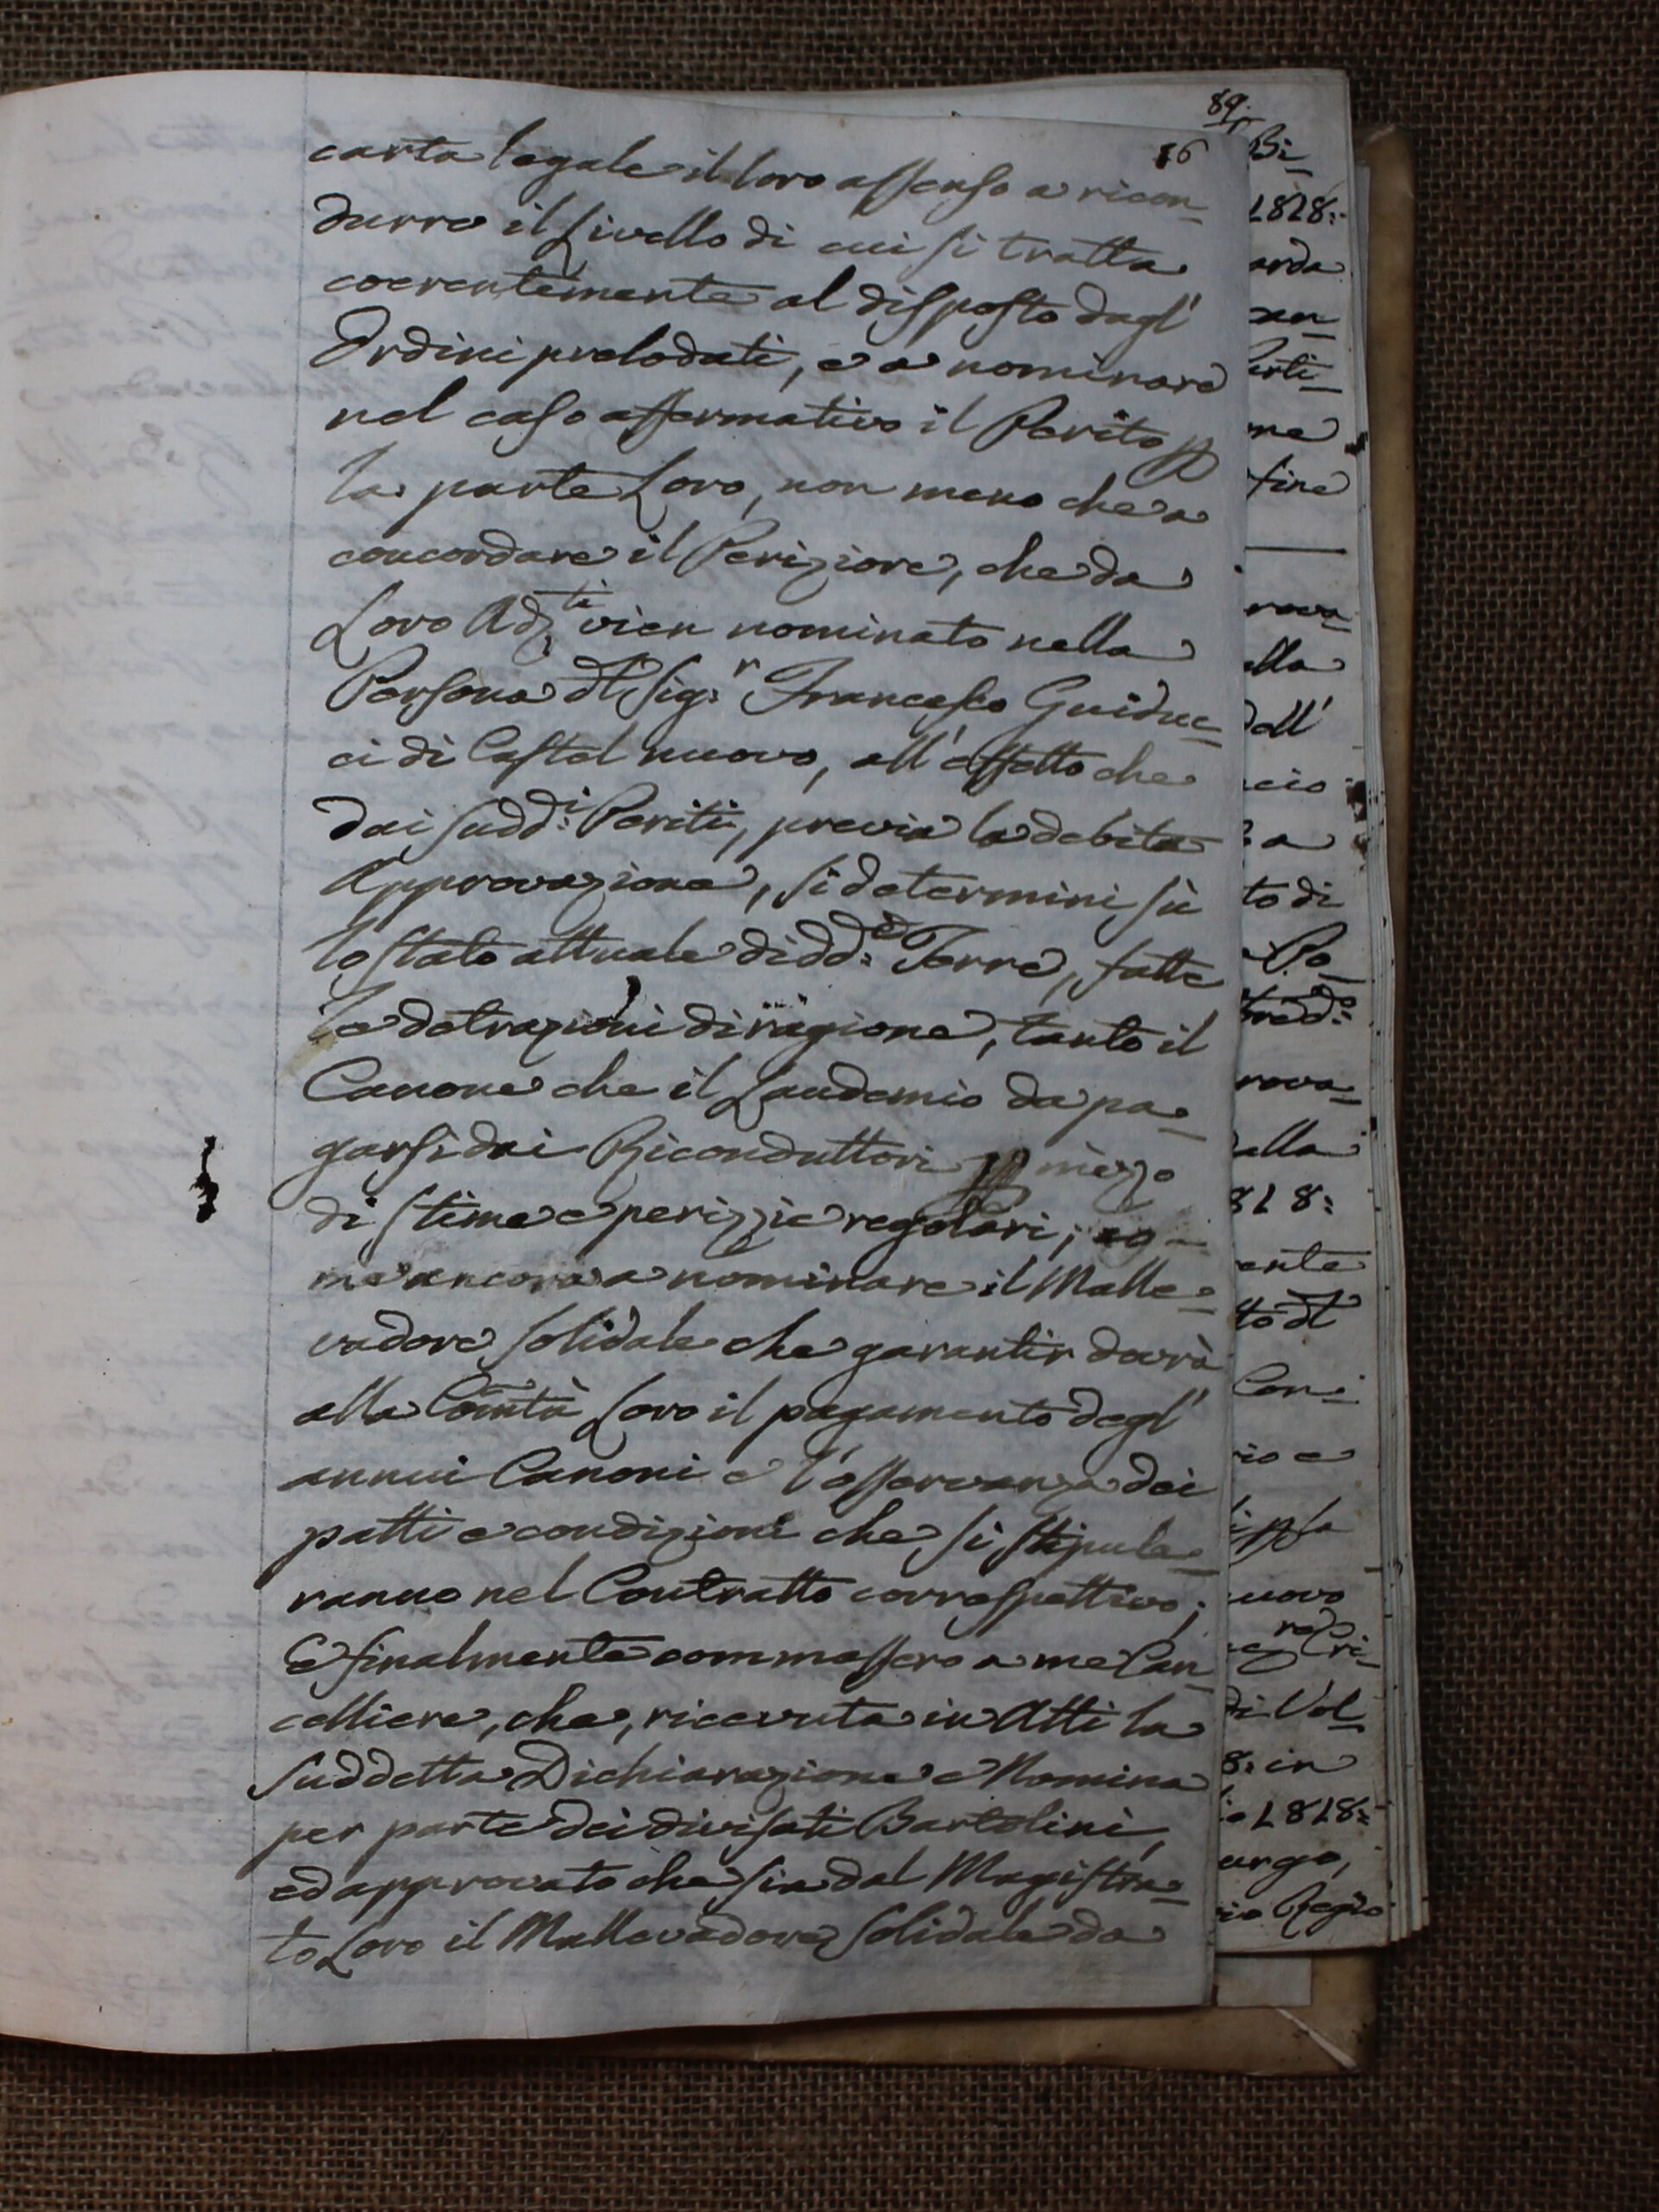 89.
16
carta legale il loro assenso a ricon=
durre il Livello di cui si tratta
coerentemente al disposto dagl'
Ordini prelodati, e a nominare
nel caso affermativo il Perito p
la parte Loro, non meno che a
concordare il Periziore, che da
Loro Adz.ti vien nominato nella
Persona dl Sig.r Francesco Guiduc=
ci di Castel nuovo, all'effetto che
dai sudd.i Periti, previa la debita
Approvazione, si determini sù
lo stato attuale di dd.e Terre, fatte
le detrazioni di ragione, tanto il
Canone che il Laudemio da pa=
garsi dai Riconduttori p mezzo
di stime e perizzie regolari; co=
me ancora a nominare il Malle=
vadore solidale che garantir dovrà
alla Comtà Loro il pagamento degl'
annui Canoni e l'osservanza dei
patti e condizioni che si stipule=
ranno nel Contratto correspettivo;
E finalmente commessero a me Can=
celliere, che, ricevuta in Atti la
suddetta Dichiarazione e Nomina
per parte dei divisati Bartolini,
ed approvato che sia dal Magistra=
to Loro il Mallevadore solidale da
Bi=
1828:
arda
me
fine
rova=
alla
dell'
cio
to di
Po=
rova=
dalla
818:
ente
to dl
rio e
uovo
di Vol=
8: in
1818:
urgo,
rio Regio